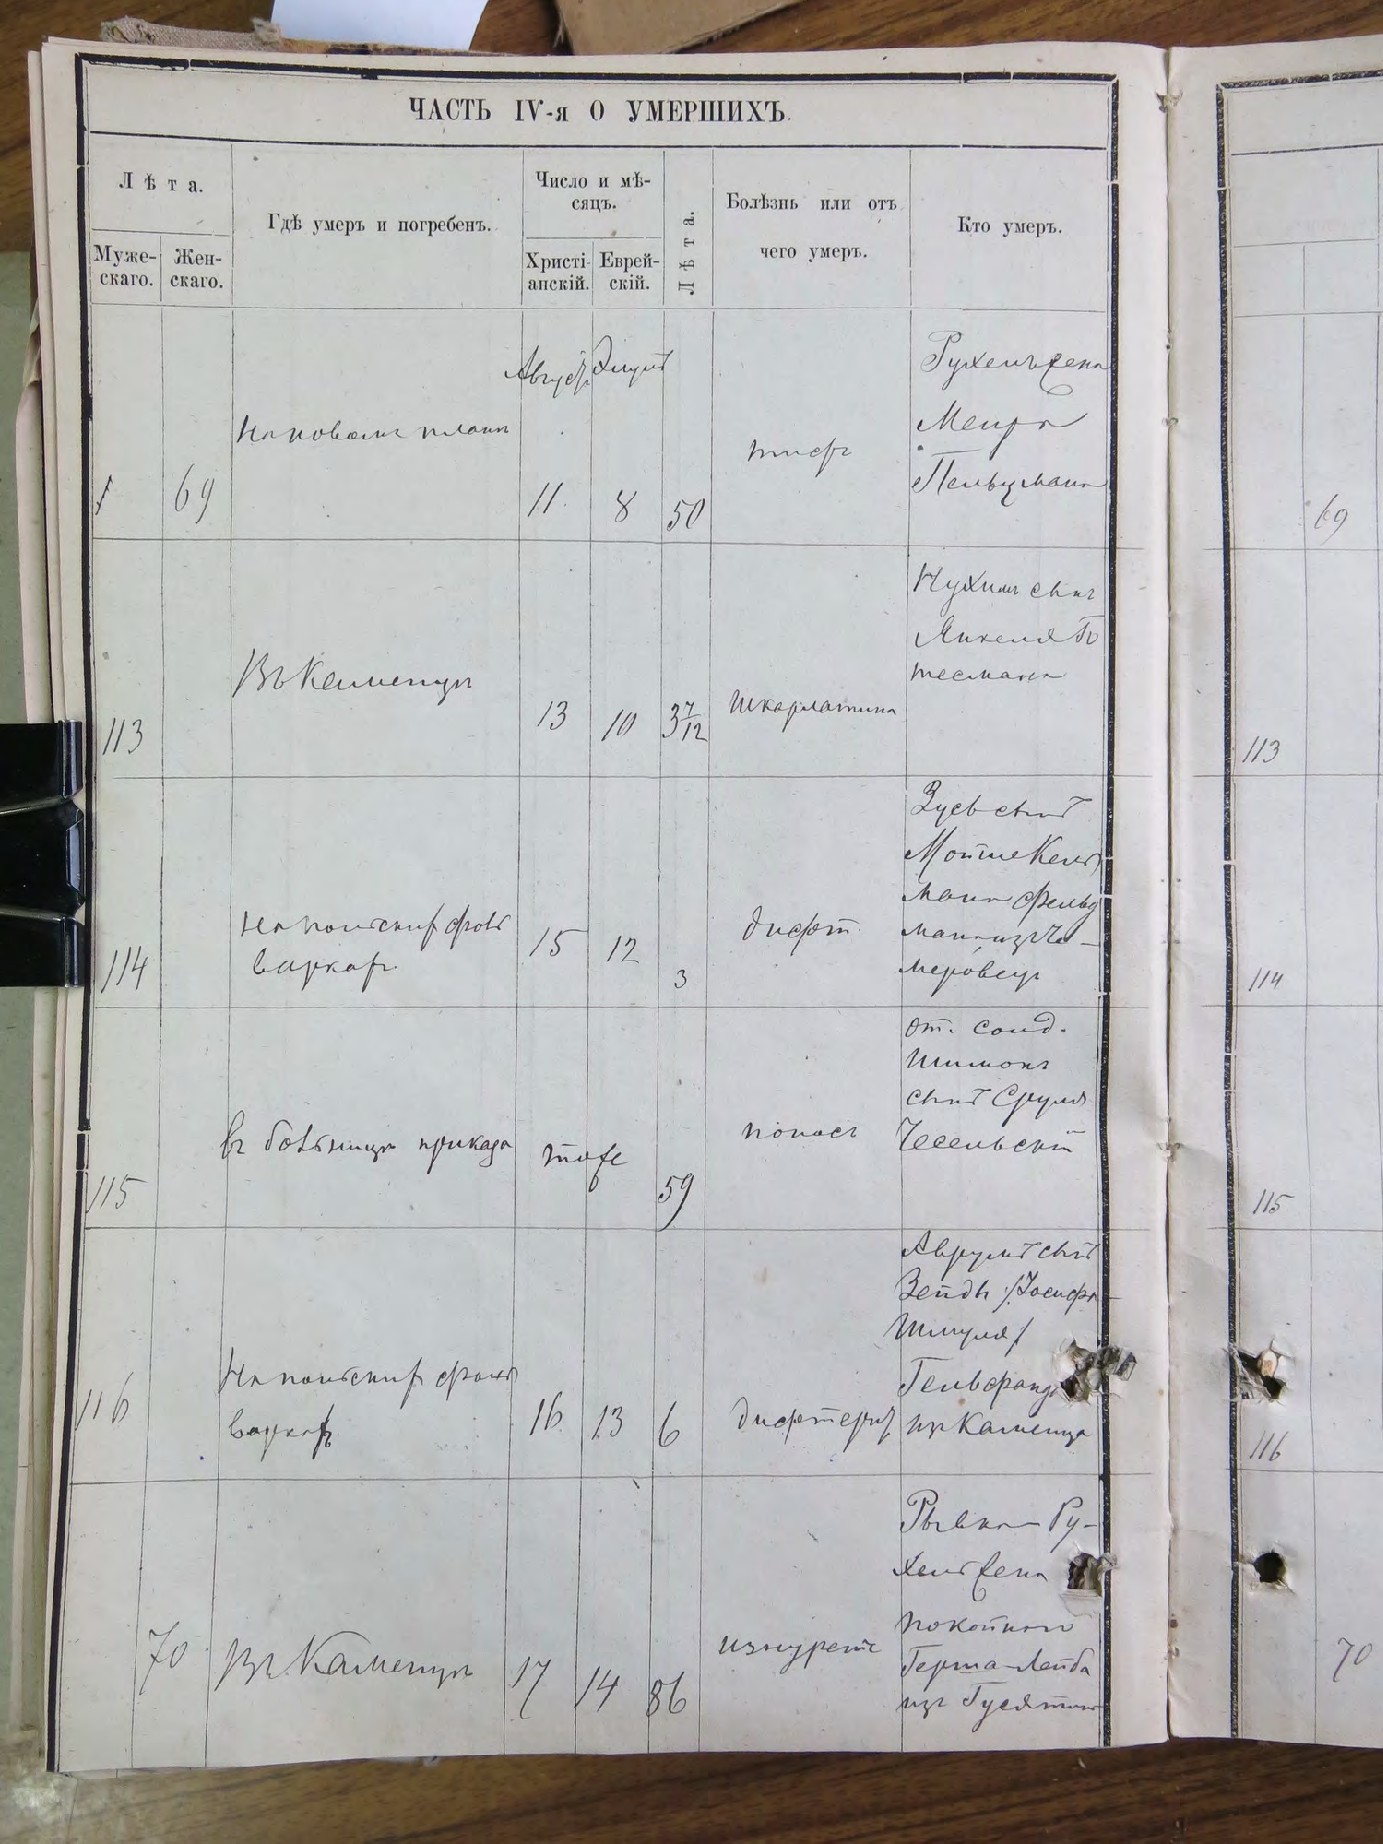 ЧАСТЬ IV-я О УМЕРШИХЪ.
Лѣта.
Муже-
скаго.
Жен-
скаго.
Гдѣ умеръ и погребенъ.
Число и мѣ-
сяцъ.
Христі-
анскій.
Еврей-
скій.
Лѣта.
Болѣзнь или отъ
чего умеръ.
Кто умеръ.
69
на новомъ планѣ
Август
11
8
50
тифъ
Рухель жена
Меира
69
113
Въ Каменцѣ
13
10
3 7/12
шкарлатина
Нухимъ сынъ
Янкеля
113
114
на польских фоль
варкахъ
15
12
3
дифт.
Зусь сынъ
Мотте Кель
мана Фельд
мана изъ Че-
меровец
114
115
въ больницѣ приказа
тоже
59
поносъ
от. солд.
Шимонъ
сынъ Сруля
115
116
На польских фоль
варкахъ
16
13
6
дифтерит
Аврумъ сынъ
Зейды /Иосифа
Шмуля/
Гельфанд
изъ Каменца
116
70
Въ Каменцѣ
17
14
86
изнурен
Рывка-Ру-
хель жена
покойного
Герша-Лейба
изъ Гусятина
70